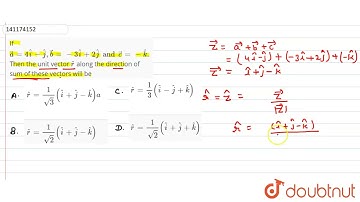 141174152
If
a⃗ = 4î − ĵ, b⃗ = −3î + 2ĵ and c⃗ = −k̂.
Then the unit vector r̂ along the direction of
sum of these vectors will be
A. r̂ = 1/√3 (î + ĵ − k̂)a
C. r̂ = 1/3 (î − ĵ + k̂)
B. r̂ = 1/√2 (î + ĵ − k̂)
D. r̂ = 1/√2 (î + ĵ + k̂)
z⃗ = a⃗ + b⃗ + c⃗
= (4î − ĵ) + (−3î + 2ĵ) + (−k̂)
z⃗ = î + ĵ − k̂
r̂ = ẑ = z⃗/|z⃗|
r̂ = (î + ĵ − k̂)
doubtnut